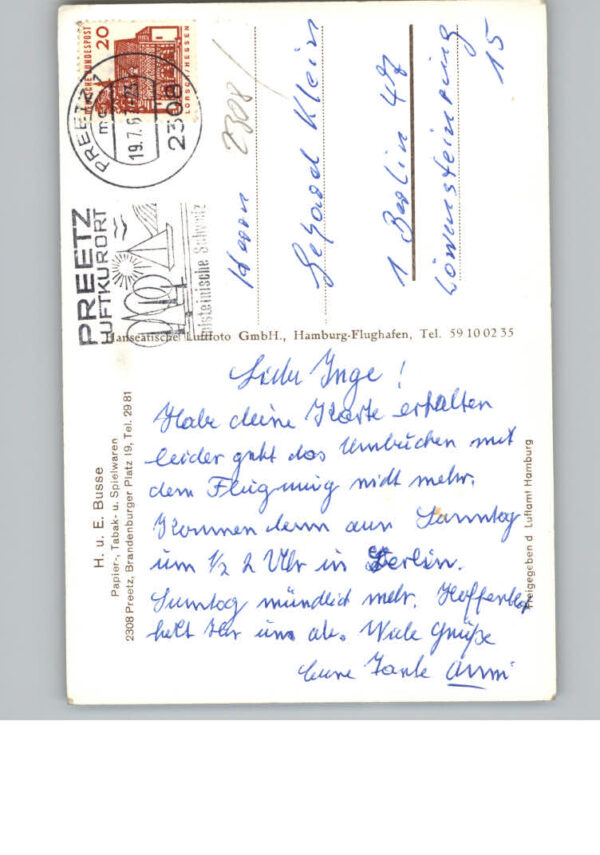 DEUTSCHE BUNDESPOST
20
LORSCH/HESSEN
PREETZ
19.7.6
2308
PREETZ
LUFTKURORT
Holsteinische Schweiz
2308
Herrn
Gerhard Klein
1 Berlin 47
Löwensteinring
15
Hanseatische Luftfoto GmbH., Hamburg-Flughafen, Tel. 59 10 02 35
H. u. E. Busse
Papier-, Tabak- u. Spielwaren
2308 Preetz, Brandenburger Platz 19, Tel. 29 81
Liebe Inge!
Habe deine Karte erhalten
leider geht das Umbuchen mit
dem Flugzeug nicht mehr.
Kommen dann am Samstag
um ½ 2 Uhr in Berlin.
Samstag mündlich mehr. Hoffentlich
holt Ihr uns ab. Viele Grüße
Eure Tante Anni
Freigegeben d Luftamt Hamburg